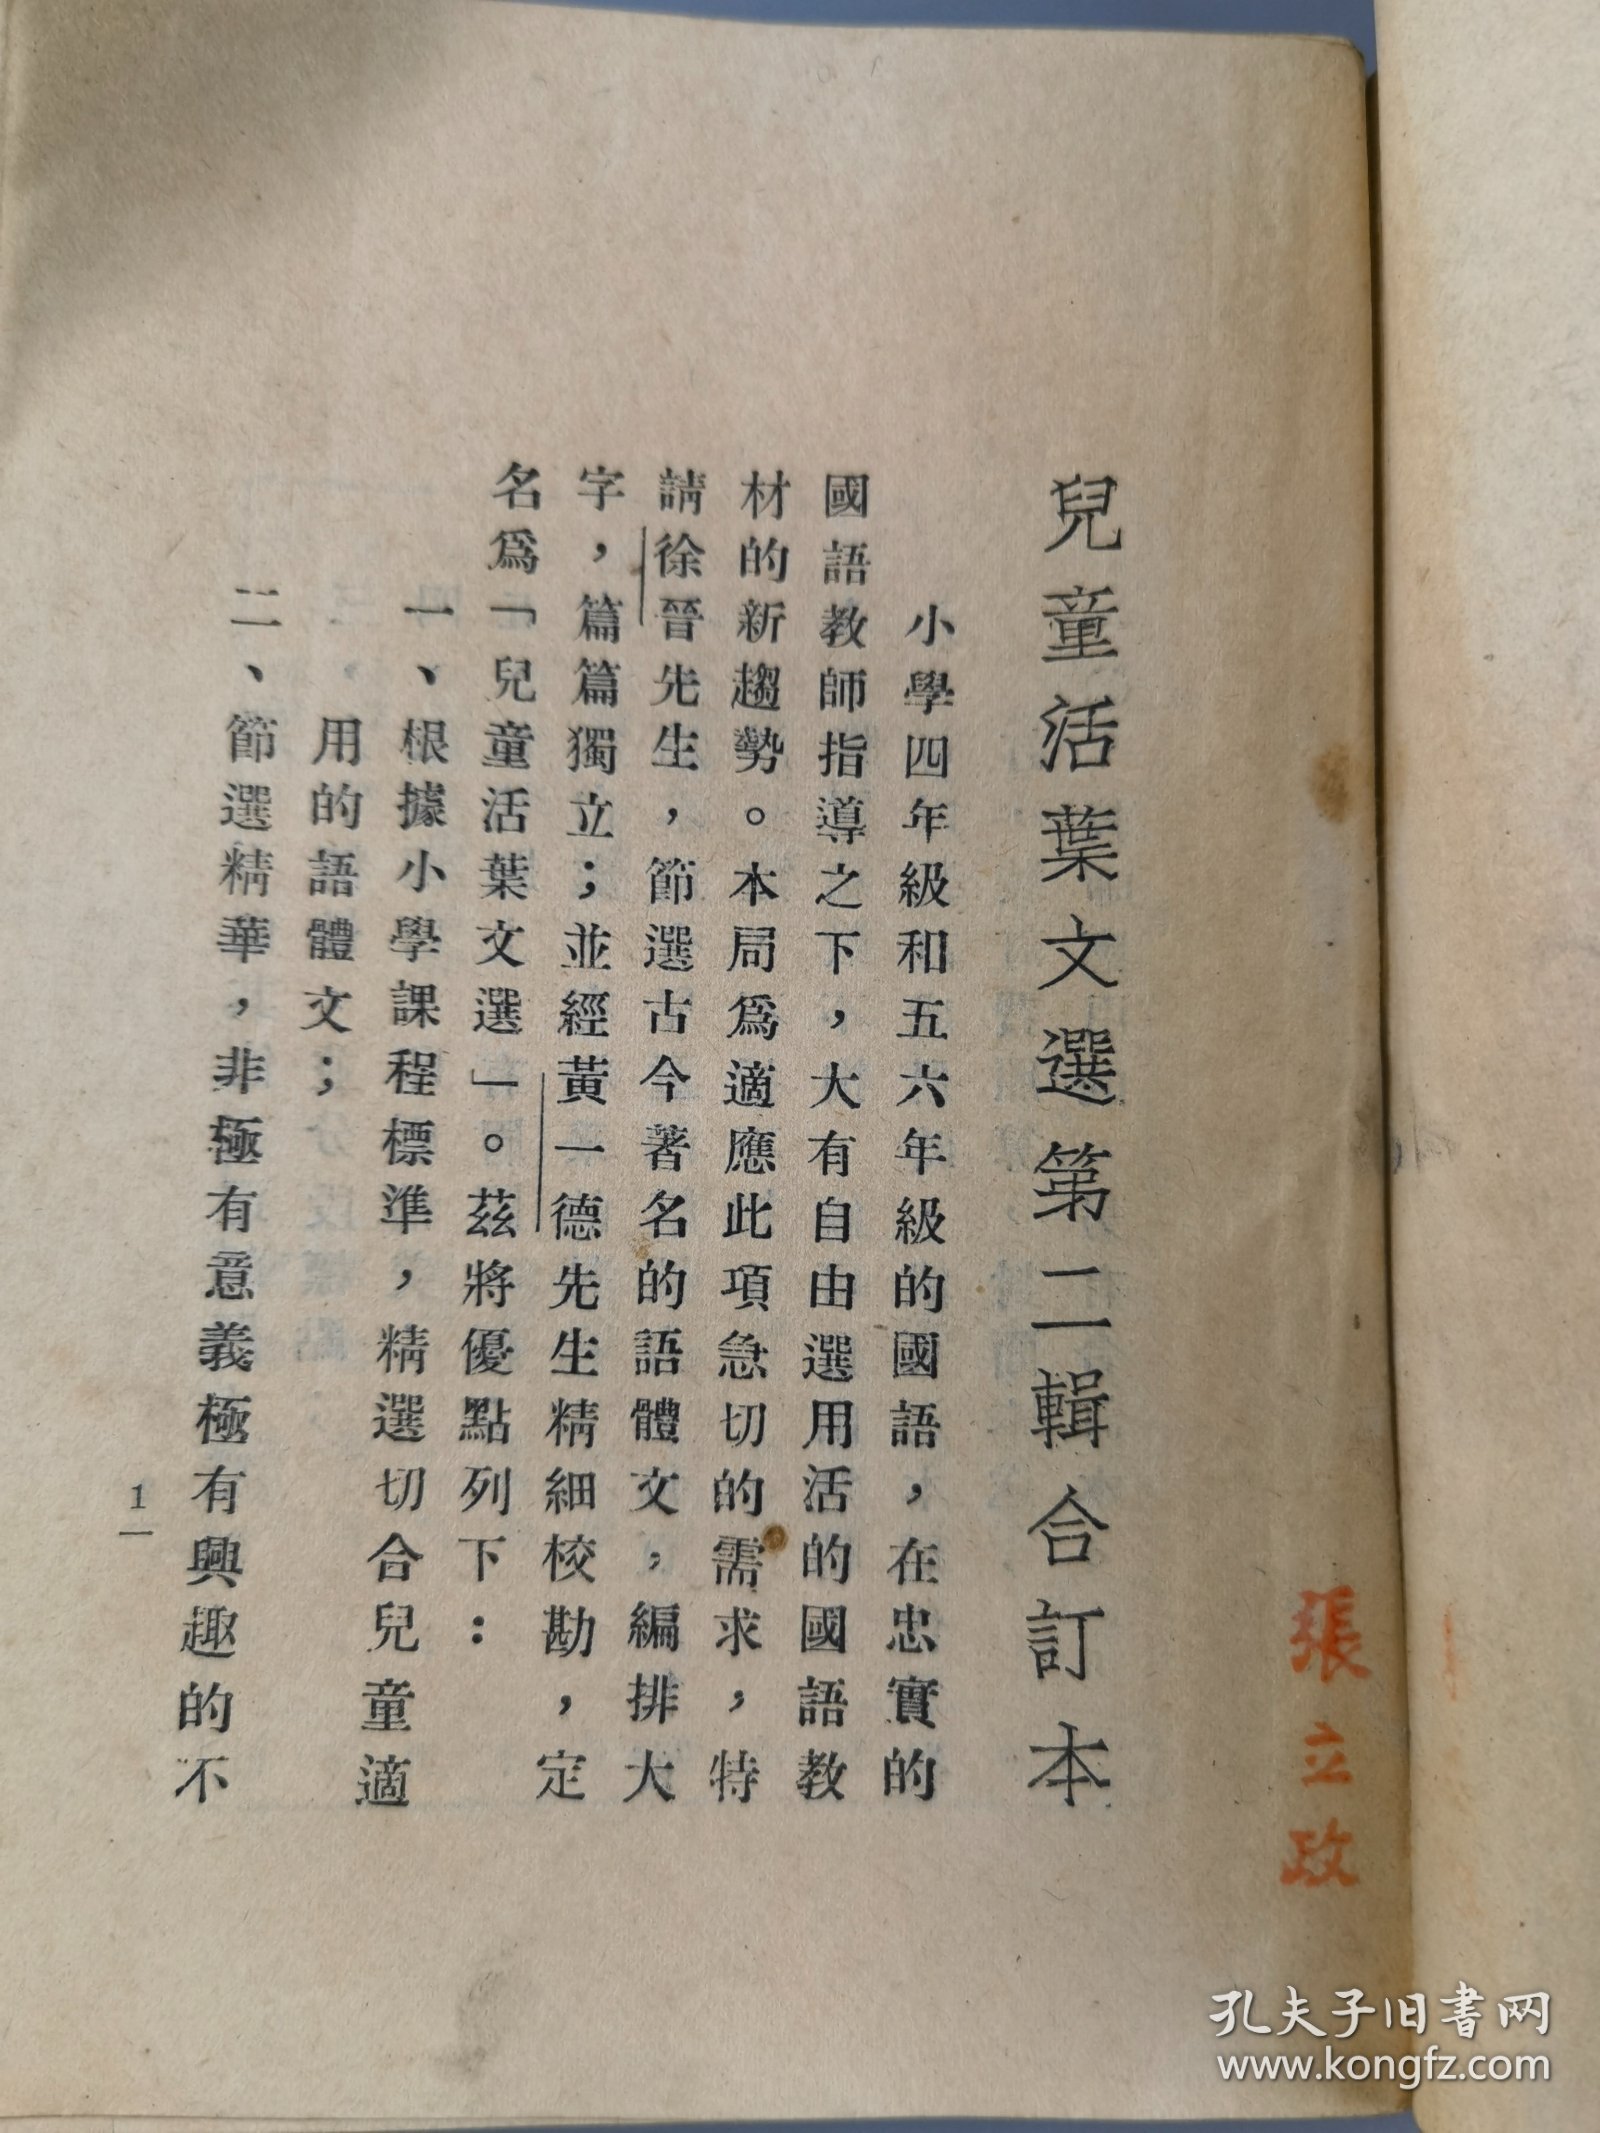 兒童活葉文選第二輯合訂本
小學四年級和五六年級的國語，在忠實的
國語教師指導之下，大有自由選用活的國語教
材的新趨勢。本局爲適應此項急切的需求，特
請徐晉先生，節選古今著名的語體文，編排大
字，篇篇獨立；並經黃一德先生精細校勘，定
名爲「兒童活葉文選」。茲將優點列下：
一、根據小學課程標準，精選切合兒童適
用的語體文；
二、節選精華，非極有意義極有興趣的不
1
張立政
孔夫子旧书网
www.kongfz.com